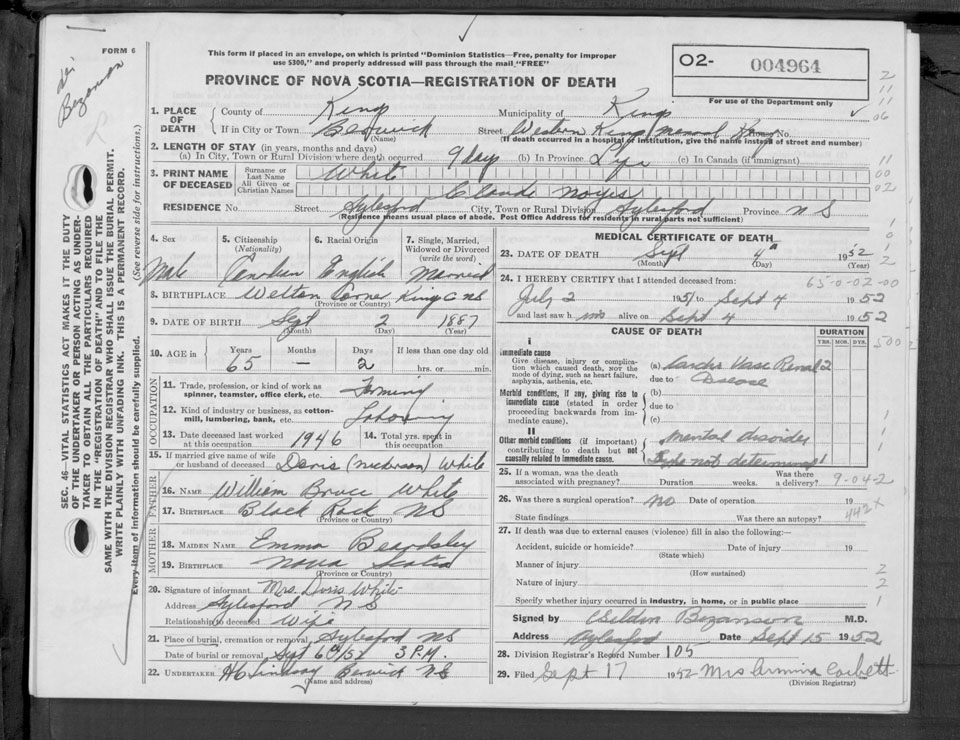 FORM 6
Bezanson
This form if placed in an envelope, on which is printed "Dominion Statistics—Free, penalty for improper
use $300," and properly addressed will pass through the mail "FREE"
PROVINCE OF NOVA SCOTIA—REGISTRATION OF DEATH
O2- 004964
For use of the Department only
1. PLACE OF DEATH
County of Kings Municipality of Kings
If in City or Town Berwick (Name) Street Western Kings Memorial House No.
(If death occurred in a hospital or institution, give the name instead of street and number)
2. LENGTH OF STAY (in years, months and days)
(a) In City, Town or Rural Division where death occurred 9 days (b) In Province Life (c) In Canada (if immigrant)
3. PRINT NAME OF DECEASED
Surname or Last Name White
All Given or Christian Names Claude Noyes
RESIDENCE No. Street Aylesford City, Town or Rural Division Aylesford Province N S
(Residence means usual place of abode. Post Office Address for residents in rural parts not sufficient)
4. Sex 5. Citizenship (Nationality) 6. Racial Origin 7. Single, Married, Widowed or Divorced (write the word)
Male Canadian English Married
8. BIRTHPLACE Welton Corner Kings Co NS
(Province or Country)
9. DATE OF BIRTH Sept 2 1887
(Month) (Day) (Year)
10. AGE in Years Months Days If less than one day old
65 — 2 hrs. or min.
OCCUPATION
11. Trade, profession, or kind of work as spinner, teamster, office clerk, etc. Farming
12. Kind of industry or business, as cotton-mill, lumbering, bank, etc. Laboring
13. Date deceased last worked at this occupation 1946 14. Total yrs. spent in this occupation
15. If married give name of wife or husband of deceased Doris (Nickerson) White
FATHER
16. NAME William Bruce White
17. BIRTHPLACE Black Rock NS
(Province or Country)
MOTHER
18. MAIDEN NAME Emma Beardsley
19. BIRTHPLACE Nova Scotia
(Province or Country)
20. Signature of informant Mrs. Doris White
Address Aylesford N S
Relationship to deceased Wife
21. Place of burial, cremation or removal Aylesford NS
Date of burial or removal Sept 6th/52 3 P.M.
22. UNDERTAKER H C Lindsay Berwick NS
(Name and address)
MEDICAL CERTIFICATE OF DEATH
23. DATE OF DEATH Sept 4 1952
(Month) (Day) (Year)
24. I HEREBY CERTIFY that I attended deceased from: 65-0-02-00
July 2 1951 to Sept 4 1952
and last saw him alive on Sept 4 1952
CAUSE OF DEATH
DURATION
YRS. MOS. DYS.
I
Immediate cause
Give disease, injury or complication which caused death, NOT the mode of dying, such as heart failure, asphyxia, asthenia, etc.
(a) Cardio Vasc Renal 2
due to Disease
Morbid conditions, if any, giving rise to immediate cause (stated in order proceeding backwards from immediate cause).
(b)
due to
(c)
II
Other morbid conditions (if important) contributing to death but not causally related to immediate cause.
Mental disorder
Type not determined
25. If a woman, was the death associated with pregnancy? Duration weeks. Was there a delivery? 9-04-2
26. Was there a surgical operation? no Date of operation 19
State findings Was there an autopsy? 442X
27. If death was due to external causes (violence) fill in also the following:—
Accident, suicide or homicide? Date of injury 19
(State which)
Manner of injury
(How sustained)
Nature of injury
Specify whether injury occurred in industry, in home, or in public place
Signed by Weldon Bezanson M.D.
Address Aylesford Date Sept 15 1952
28. Division Registrar's Record Number 105
29. Filed Sept 17 1952 Mrs Armina Corbett
(Division Registrar)
SEC. 46-VITAL STATISTICS ACT MAKES IT THE DUTY
OF THE UNDERTAKER OR PERSON ACTING AS UNDER-
TAKER TO OBTAIN ALL THE PARTICULARS REQUIRED
IN THE "REGISTRATION OF DEATH" AND TO FILE THE
SAME WITH THE DIVISION REGISTRAR WHO SHALL ISSUE THE BURIAL PERMIT.
WRITE PLAINLY WITH UNFADING INK. THIS IS A PERMANENT RECORD.
Every item of information should be carefully supplied. (See reverse side for instructions.)